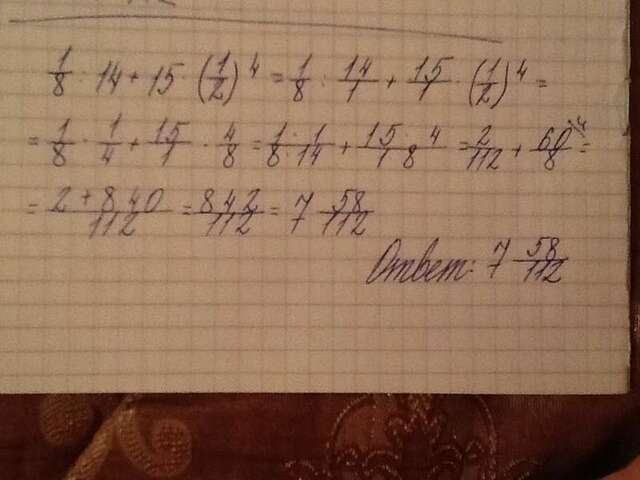 1/8 · 14 + 15 · (1/2)^4 = 1/8 · 14/1 + 15/1 · (1/2)^4 =
= 1/8 · 1/4 + 15/1 · 4/8 = 1·1/8·14 + 15·4/1·8 = 2/112 + 60/8 =
= 2+840/112 = 842/112 = 7 58/112
Ответ: 7 58/112